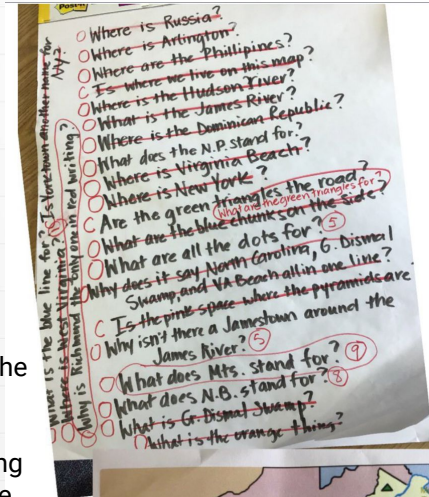 Post-it
O Where is Russia?
O Where is Arlington?
O Where are the Phillipines?
C Is where we live on this map?
O Where is the Hudson River?
O What is the James River?
O Where is the Dominican Republic?
O What does the N.P. stand for?
O Where is Virginia Beach?
O Where is New York?
C Are the green triangles the road?
What are the green triangles for?
O What are the blue chunks on the side?
O What are all the dots for? 5
O Why does it say North Carolina, G. Dismal
Swamp, and VA Beach all in one line?
C Is the pink space where the pyramids are
O Why isn't there a Jamestown around the
James River? 5
O What does Mts. stand for? 9
O What does N.B. stand for? 8
O What is Gr. Dismal Swamp?
O What is the orange thing?
O What is the blue line for? Is Yorktown another name for
NY?
O Where is West Virginia?
O Why is Richmond the only one in red writing?
he
ng